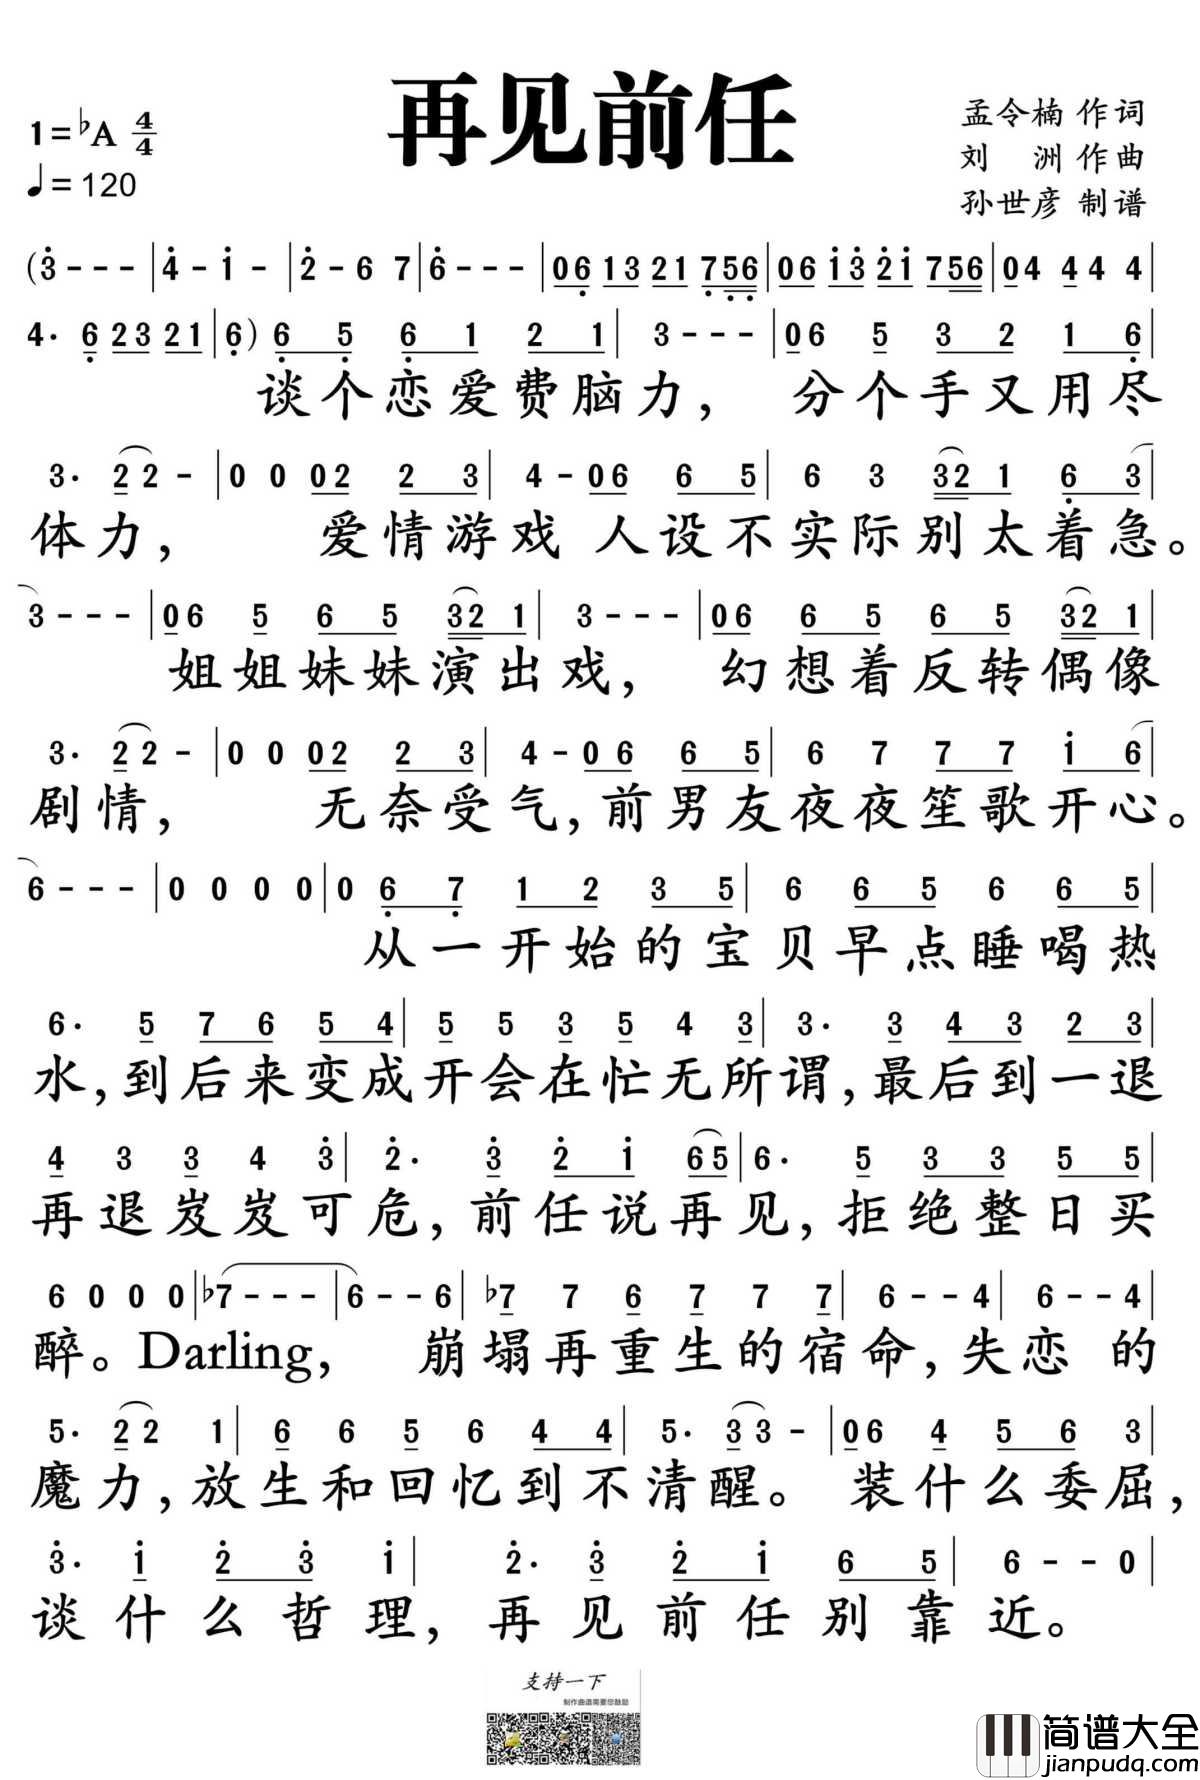 再见前任
1=♭A 4/4
♩=120
孟令楠 作词
刘 洲 作曲
孙世彦 制谱
(3̇--- |4̇-1̇- |2̇-67 |6̇--- |06̣ 13 21 7̣5̣6̣ |06 1̇3̇ 2̇1̇ 756 |04 4 4 4 |
4. 6̣ 23 21 |6̣) 6̣ 5̣ 6̣ 1 2 1 | 3--- |06 5 3 2 1 6̣ |
谈个恋爱费脑力, 分个手又用尽
3. 2 2 - |0 0 02 2 3 | 4-06 6 5 | 6 3 32 1 6̣ 3 |
体力, 爱情游戏 人设不实际别太着急。
3--- |06 5 6 5 32 1 | 3--- |06 6 5 6 5 32 1 |
姐姐妹妹演出戏, 幻想着反转偶像
3. 2 2 - |0 0 02 2 3 | 4-06 6 5 | 6 7 7 7 1̇ 6 |
剧情, 无奈受气, 前男友夜夜笙歌开心。
6--- |0 0 0 0 |0 6̣ 7̣ 1 2 3 5 | 6 6 5 6 6 5 |
从一开始的宝贝早点睡喝热
6. 5 7 6 5 4 | 5 5 3 5 4 3 | 3. 3 4 3 2 3 |
水, 到后来变成开会在忙无所谓, 最后到一退
4 3 3 4 3̇ | 2̇. 3̇ 2̇ 1̇ 65 |6. 5 3 3 5 5 |
再退岌岌可危, 前任说再见, 拒绝整日买
6 0 0 0 |♭7--- |6--6 |♭7 7 6 7 7 7 | 6--4 | 6--4 |
醉。Darling, 崩塌再重生的宿命, 失恋的
5. 2 2 1 | 6 6 5 6 4 4 | 5. 3 3 - |06 4 5 6 3 |
魔力, 放生和回忆到不清醒。 装什么委屈,
3̇. 1̇ 2̇ 3̇ 1̇ | 2̇. 3̇ 2̇ 1̇ 6 5 | 6--0 |
谈什么哲理, 再见前任别靠近。
支持一下
制作曲谱需要您鼓励
简谱大全
jianpudq.com